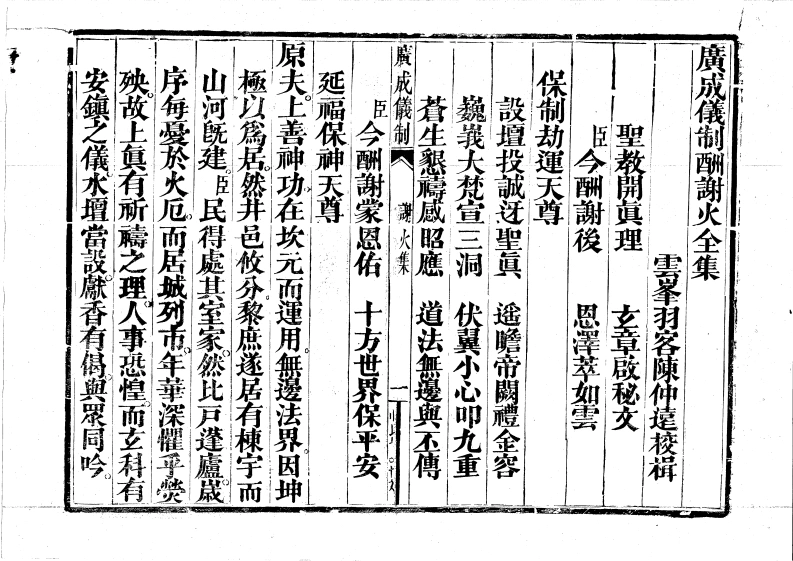 廣成儀制酬謝火全集
雲峯羽客陳仲遠校楫
聖教開眞理 玄章啟秘文
臣今酬謝後 恩澤萃如雲
保制劫運天尊
設壇投誠迓聖眞 遥瞻帝闕禮金容
巍峩大梵宣三洞 伏翼小心叩九重
蒼生懇禱感昭應 道法無邊與不傳
廣成儀制 謝火集 一
臣今酬謝蒙恩佑 十方世界保平安
延福保神天尊
原夫。上善神功。在坎元而運用。無邊法界。因坤
極以爲居。然井邑攸分。黎庶遂居有棟宇而
山河旣建。臣民得處其室家。然比戸蓬廬。歲
序每憂於火厄。而居城列市。年華深懼乎熒
殃。故上眞有祈禱之理。人事恐惶。而玄科有
安鎮之儀。水壇當設。獻香有偈。與眾同吟。